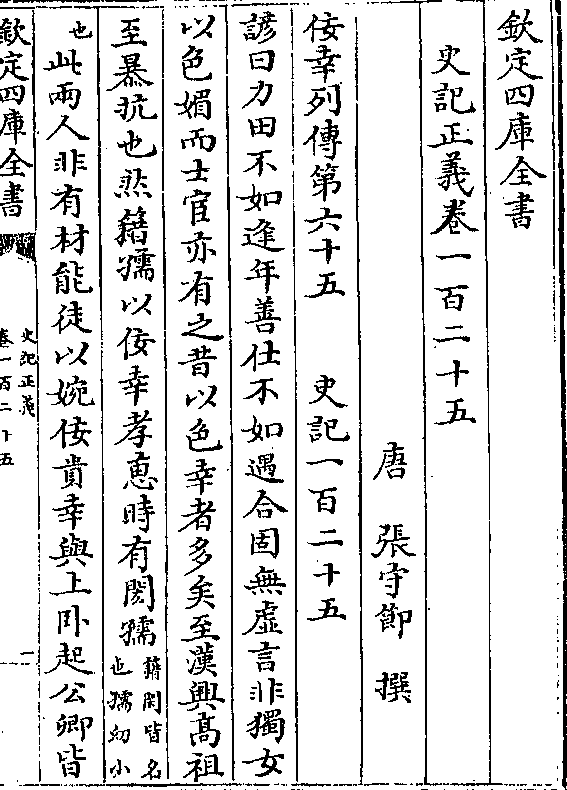 欽定四庫全書
史記正義卷一百二十五
唐 張守節 撰
佞幸列傳第六十五 史記一百二十五
諺曰力田不如逢年善仕不如遇合固無虛言非獨女
以色媚而士宦亦有之昔以色幸者多矣至漢興高祖
至暴抗也然籍孺以佞幸孝惠時有閎孺籍閎皆名也孺幼小
也此兩人非有材能徒以婉佞貴幸與上卧起公卿皆
欽定四庫全書
史記正義
卷一百二十五
一